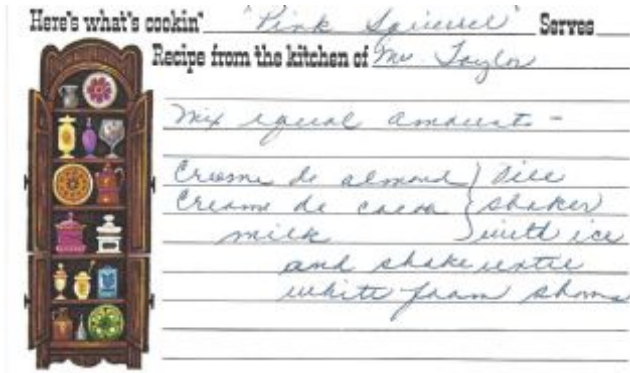 Here's what's cookin' "Pink Squirrel" Serves
Recipe from the kitchen of Mrs Taylor
Mix equal amounts -
Creame de almond } Fill
Creame de cacoa } shaker
milk } with ice
and shake until
white foam shows